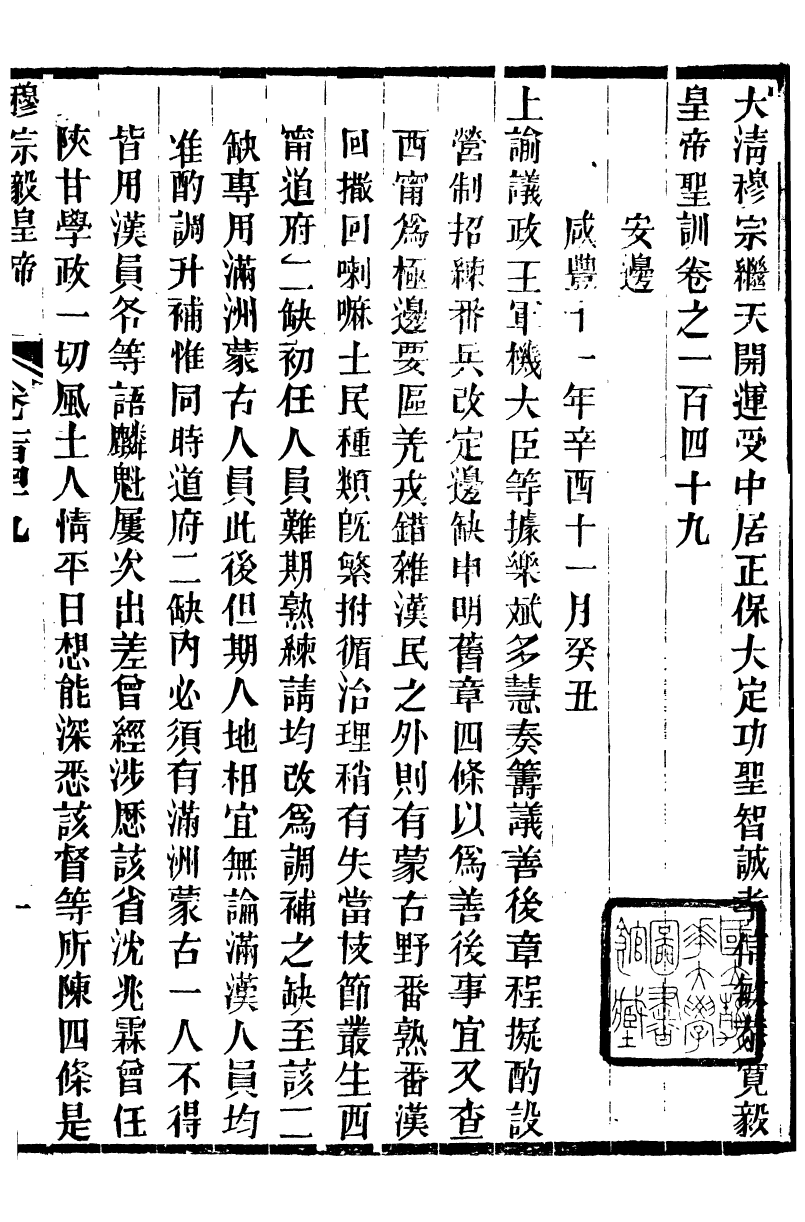 大清穆宗繼天開運受中居正保大定功聖智誠孝信敏恭寬毅
皇帝聖訓卷之一百四十九
安邊
咸豐十一年辛酉十一月癸丑
上諭議政王軍機大臣等據樂斌多慧奏籌議善後章程擬酌設
營制招練番兵改定邊缺申明舊章四條以爲善後事宜又查
西甯爲極邊要區羌戎錯雜漢民之外則有蒙古野番熟番漢
回撒回喇嘛土民種類旣繁拊循治理稍有失當枝節叢生西
甯道府二缺初任人員難期熟練請均改爲調補之缺至該二
缺專用滿洲蒙古人員此後但期人地相宜無論滿漢人員均
准酌調升補惟同時道府二缺內必須有滿洲蒙古一人不得
皆用漢員各等語麟魁屢次出差曾經涉歷該省沈兆霖曾任
陝甘學政一切風土人情平日想能深悉該督等所陳四條是
穆宗毅皇帝
卷一百四十九
一
國立清
華大學
圖書
館藏